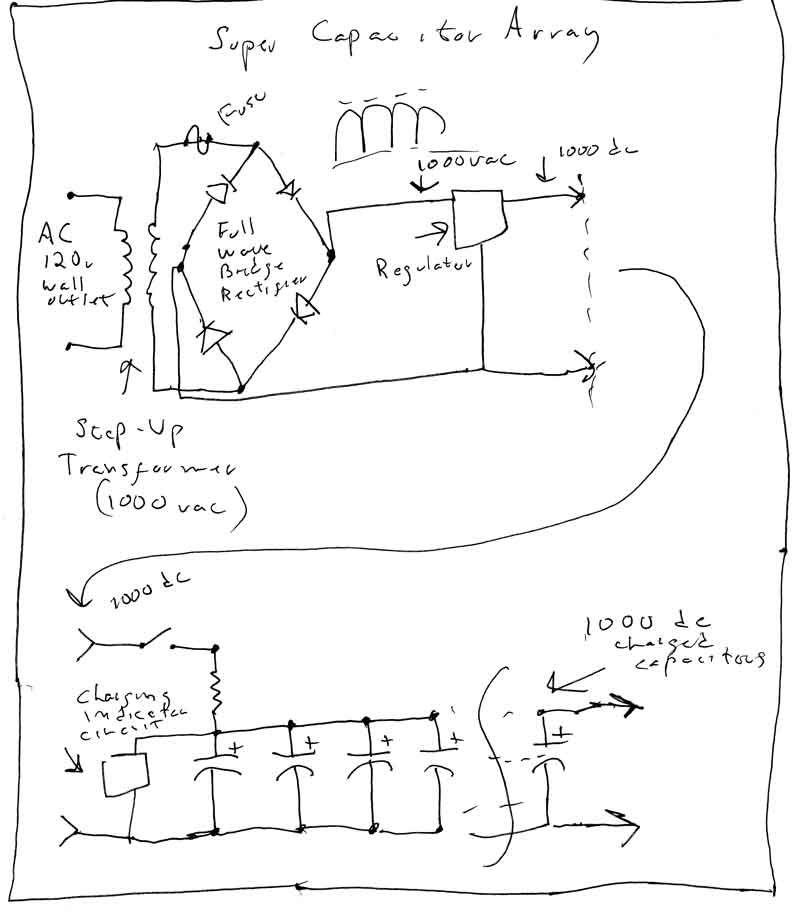 Super Capacitor Array
Fuse
1000vac
1000 dc
AC
120v
wall
outlet
Full
Wave
Bridge
Rectifier
Regulator
Step-Up
Transformer
(1000 vac)
1000 dc
1000 dc
charged
capacitors
Charging
indicator
circuit
+
+
+
+
+